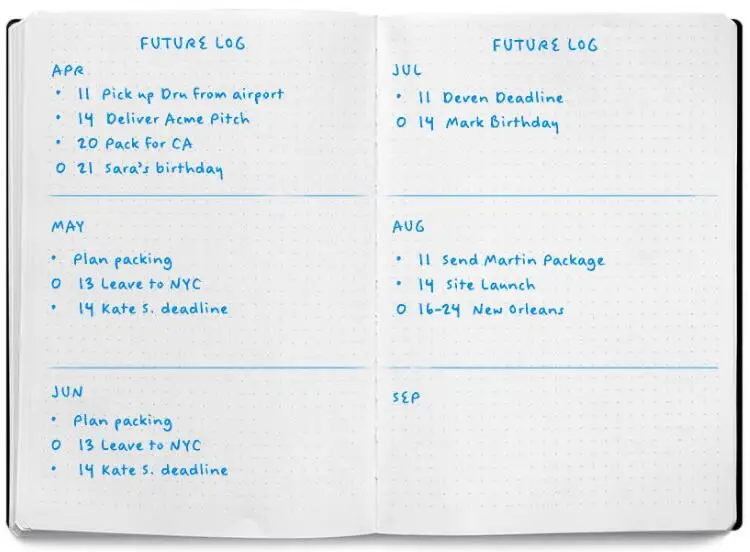 FUTURE LOG
APR
• 11 Pick up Dru from airport
• 14 Deliver Acme Pitch
• 20 Pack for CA
O 21 Sara's birthday
MAY
• Plan packing
O 13 Leave to NYC
• 14 Kate S. deadline
JUN
• Plan packing
O 13 Leave to NYC
• 14 Kate S. deadline
FUTURE LOG
JUL
• 11 Deven Deadline
O 14 Mark Birthday
AUG
• 11 Send Martin Package
• 14 Site Launch
O 16-24 New Orleans
SEP